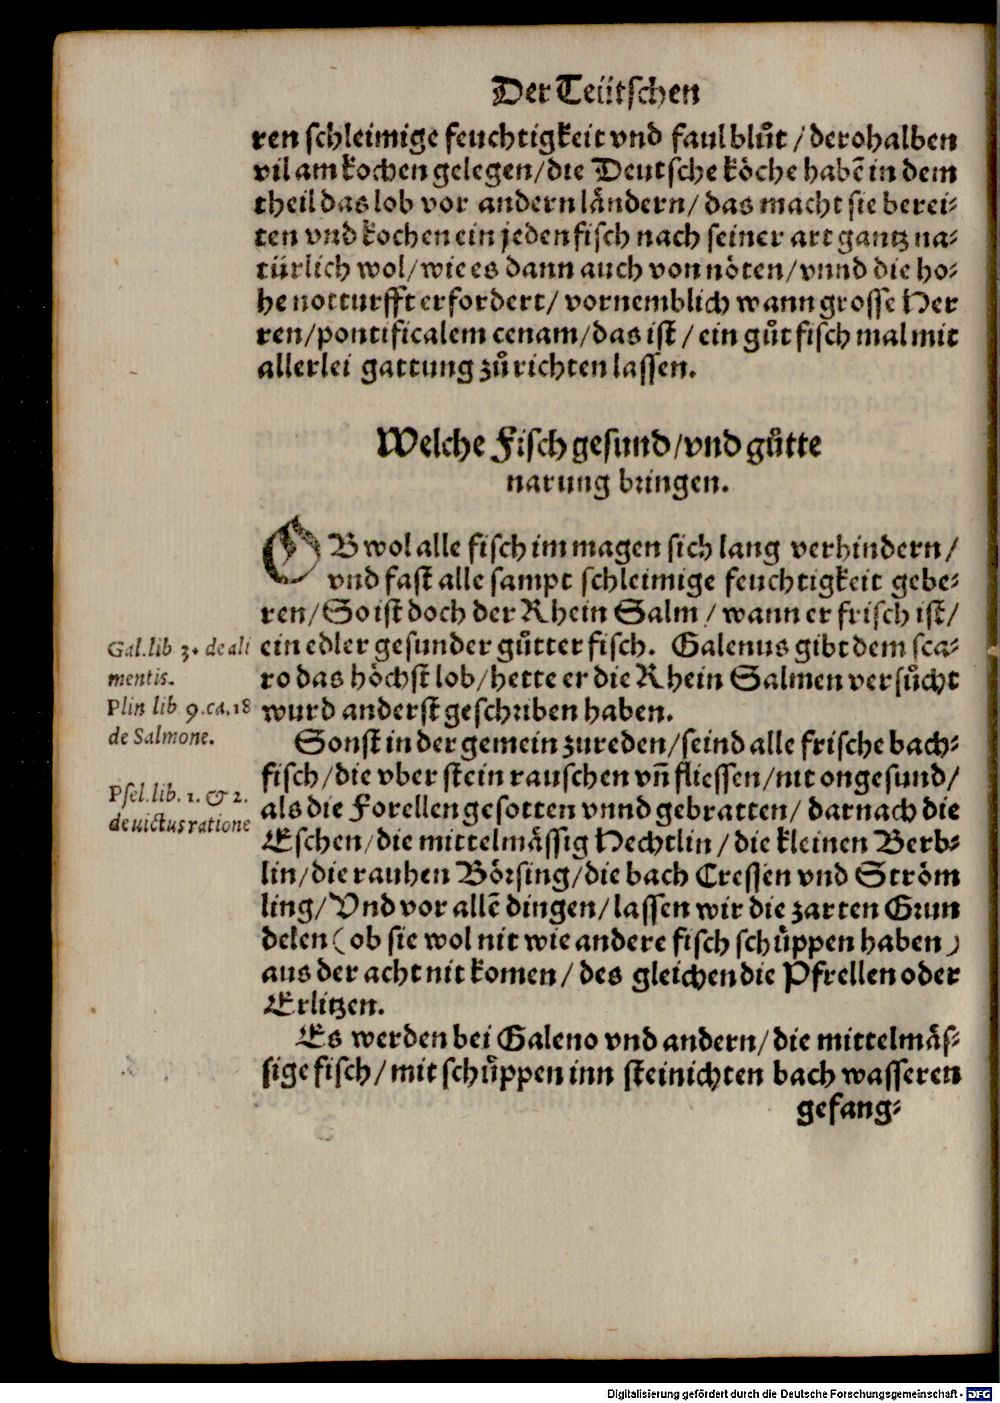 Der Teütschen
ren schleimige feuchtigkeit vnd faul blůt / derohalben
vil am kochen gelegen / die Deutsche köche habẽ in dem
theil das lob vor andern ländern / das macht sie berei⸗
ten vnd kochen ein jeden fisch nach seiner art gantz na⸗
türlich wol / wie es dann auch von nöten / vnnd die ho⸗
he notturfft erfordert / vornemblich wann grosse Her
ren / pontificalem cenam / das ist / ein gůt fisch mal mit
allerlei gattung zů richten lassen.
Welche Fisch gesund / vnd gůtte
narung bringen.
OB wol alle fisch im magen sich lang verhindern /
vnd fast alle sampt schleimige feuchtigkeit gebe⸗
ren / So ist doch der Rhein Salm / wann er frisch ist /
ein edler gesunder gůtter fisch. Galenus gibt dem sca⸗
ro das höchst lob / hette er die Rhein Salmen versůcht
wurd anderst geschriben haben.
Gal. lib 3. de ali
mentis.
Plin lib 9. ca. 18
de Salmone.
Sonst in der gemein zureden / seind alle frische bach⸗
fisch / die vber stein rauschen vñ fliessen / nit ongesund /
als die Forellen gesotten vnnd gebratten / darnach die
Eschen / die mittelmässig Hechtlin / die kleinen Berb⸗
lin / die rauhen Börsing / die bach Cressen vnd Ström
ling / Vnd vor allẽ dingen / lassen wir die zarten Grun
delen (ob sie wol nit wie andere fisch schůppen haben)
aus der acht nit komen / des gleichen die Pfrellen oder
Erlitzen.
Psel. lib. 1. & 2.
de victus ratione
Es werden bei Galeno vnd andern / die mittelmäs⸗
sige fisch / mit schůppen inn steinichten bach wasseren
gefang⸗
Digitalisierung gefördert durch die Deutsche Forschungsgemeinschaft - DFG